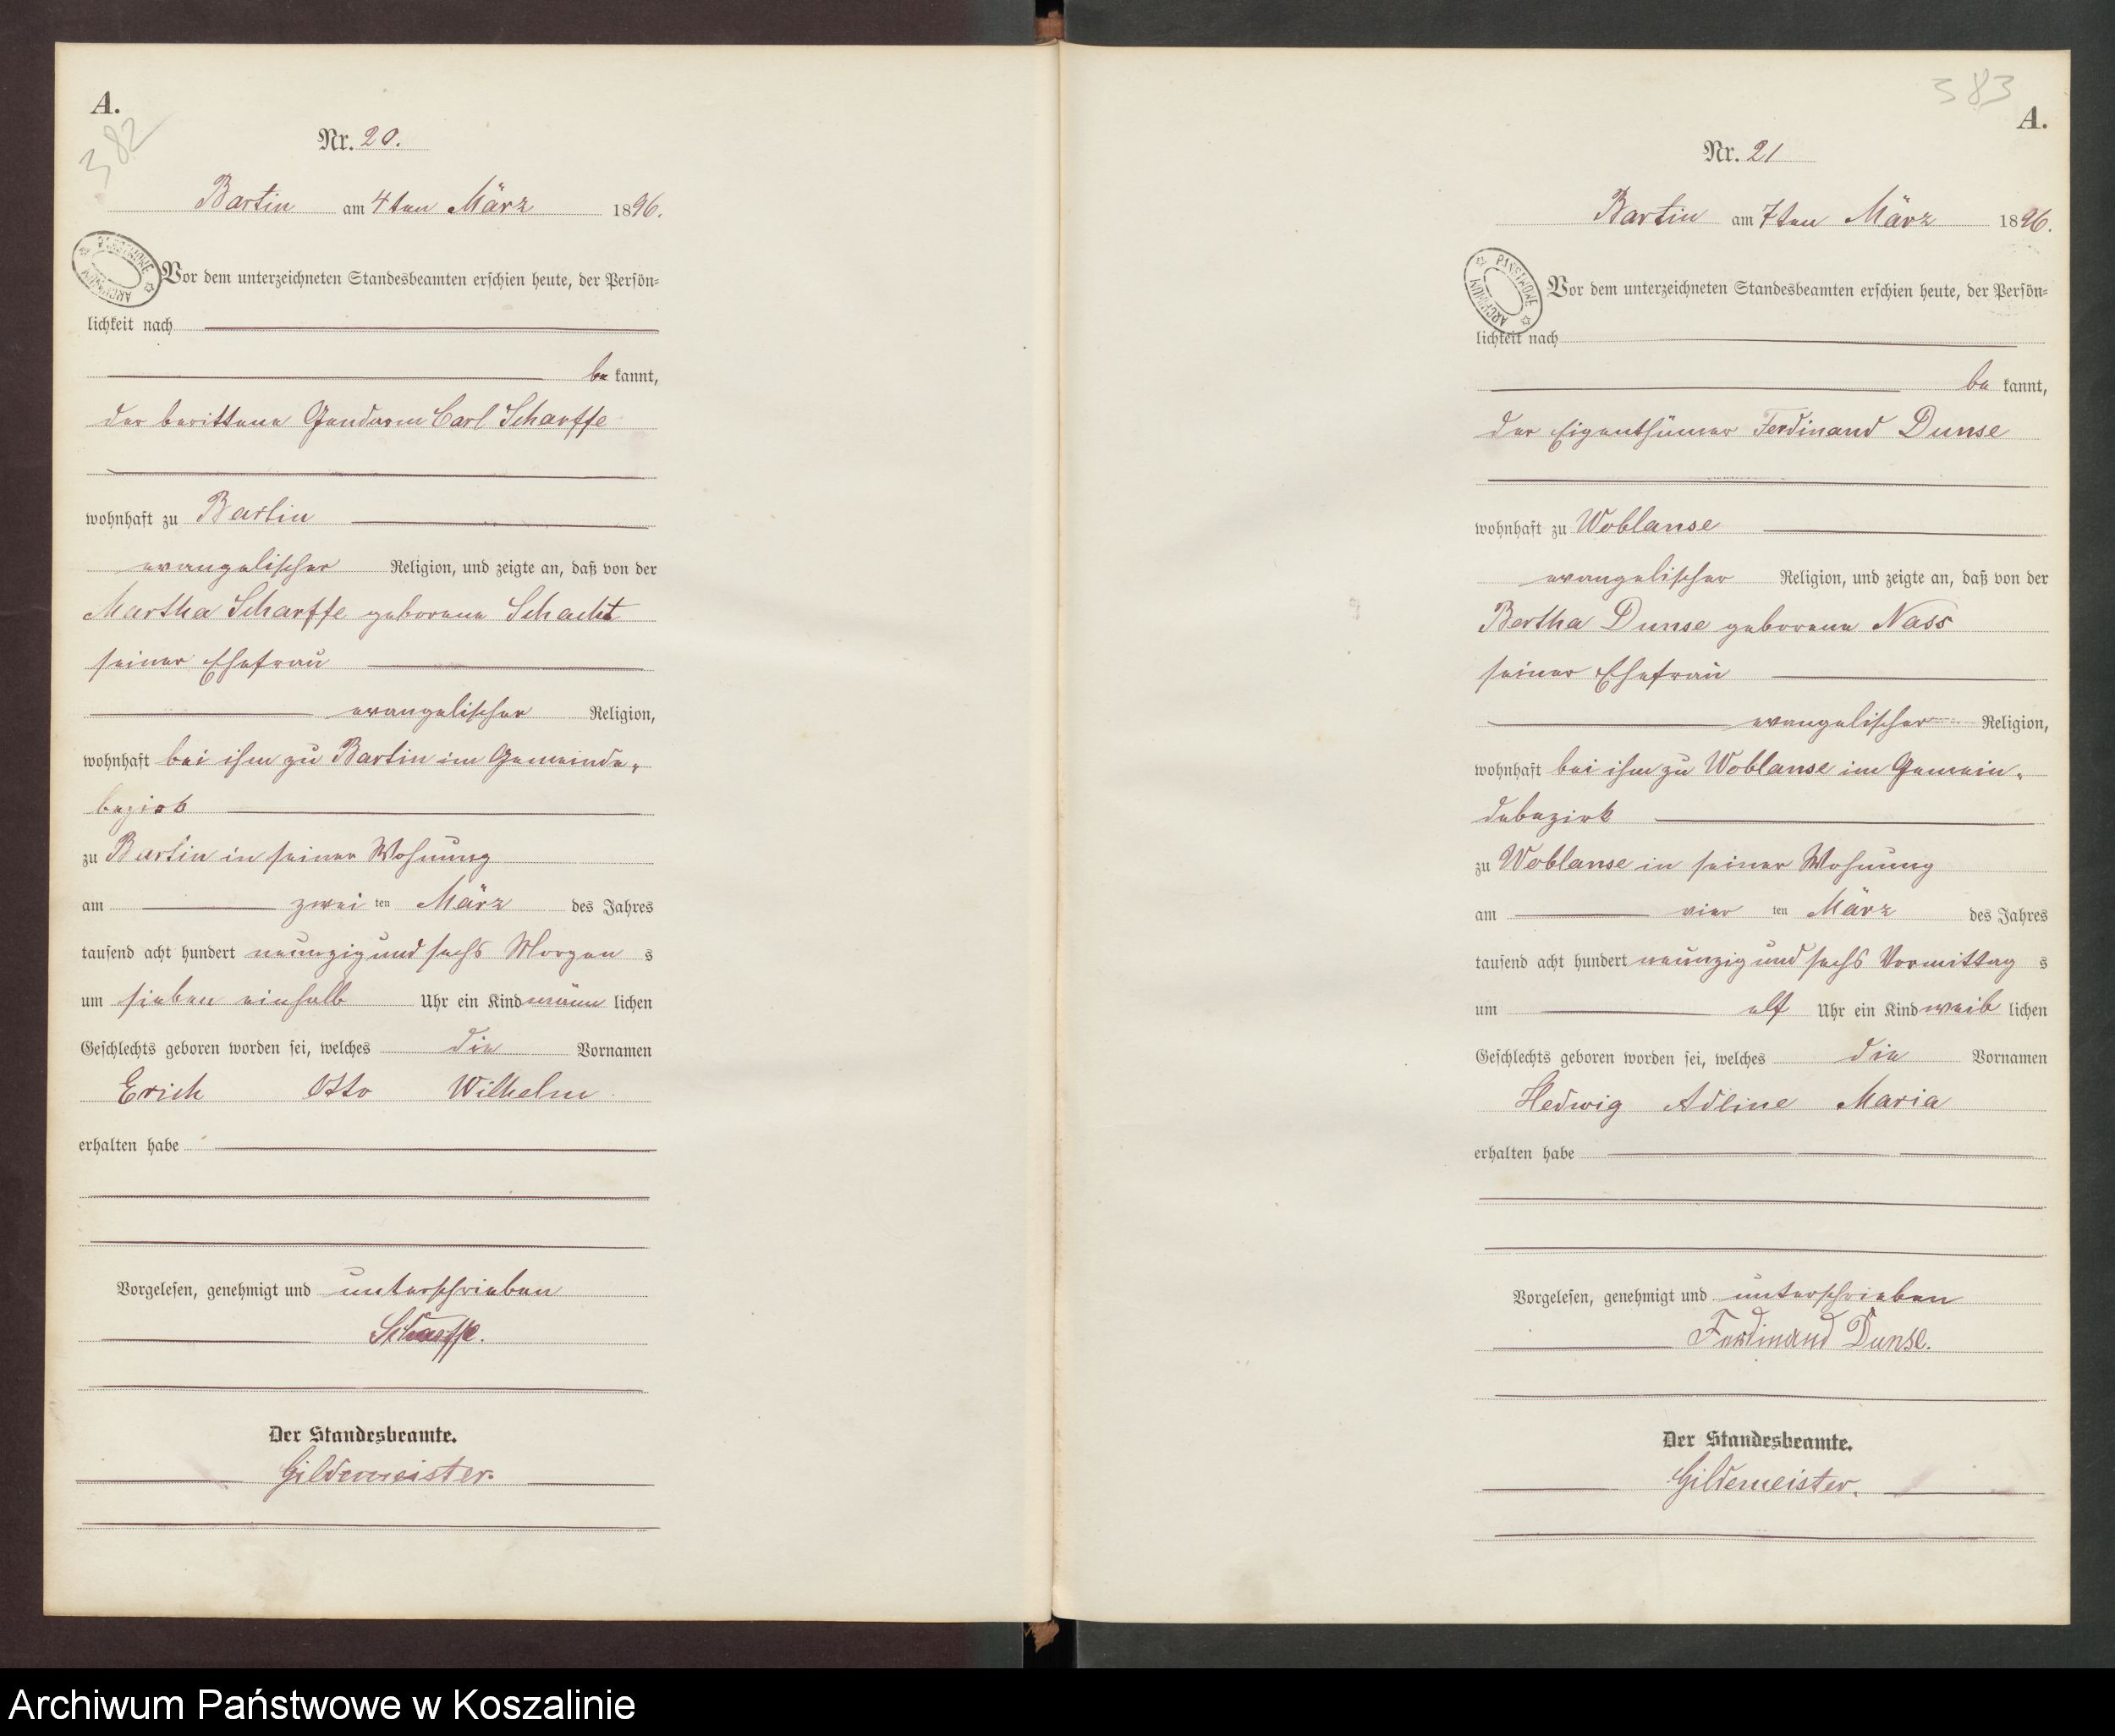 A.
382
Nr. 20.
Bartin am 4ten März 1896.
Vor dem unterzeichneten Standesbeamten erschien heute, der Persön-
lichkeit nach
be kannt,
der berittene Gendarm Carl Scharffe
wohnhaft zu Bartin
evangelischer Religion, und zeigte an, daß von der
Martha Scharffe geborene Schacht
seiner Ehefrau
evangelischer Religion,
wohnhaft bei ihm zu Bartin im Gemeinde-
bezirk
zu Bartin in seiner Wohnung
am zwei ten März des Jahres
tausend acht hundert neunzig und sechs Morgen s
um sieben einhalb Uhr ein Kind männ lichen
Geschlechts geboren worden sei, welches die Vornamen
Erich Otto Wilhelm
erhalten habe
Vorgelesen, genehmigt und unterschrieben
Scharffe.
Der Standesbeamte.
Gildemeister.
ARCHIWUM PAŃSTWOWE
383
A.
Nr. 21
Bartin am 7ten März 1896.
Vor dem unterzeichneten Standesbeamten erschien heute, der Persön-
lichkeit nach
be kannt,
der Eigenthümer Ferdinand Dunse
wohnhaft zu Woblanse
evangelischer Religion, und zeigte an, daß von der
Bertha Dunse geborene Nass
seiner Ehefrau
evangelischer Religion,
wohnhaft bei ihm zu Woblanse im Gemein-
debezirk
zu Woblanse in seiner Wohnung
am vier ten März des Jahres
tausend acht hundert neunzig und sechs Vormittag s
um elf Uhr ein Kind weib lichen
Geschlechts geboren worden sei, welches die Vornamen
Hedwig Adline Maria
erhalten habe
Vorgelesen, genehmigt und unterschrieben
Ferdinand Dunse.
Der Standesbeamte.
Gildemeister.
ARCHIWUM PAŃSTWOWE
Archiwum Państwowe w Koszalinie